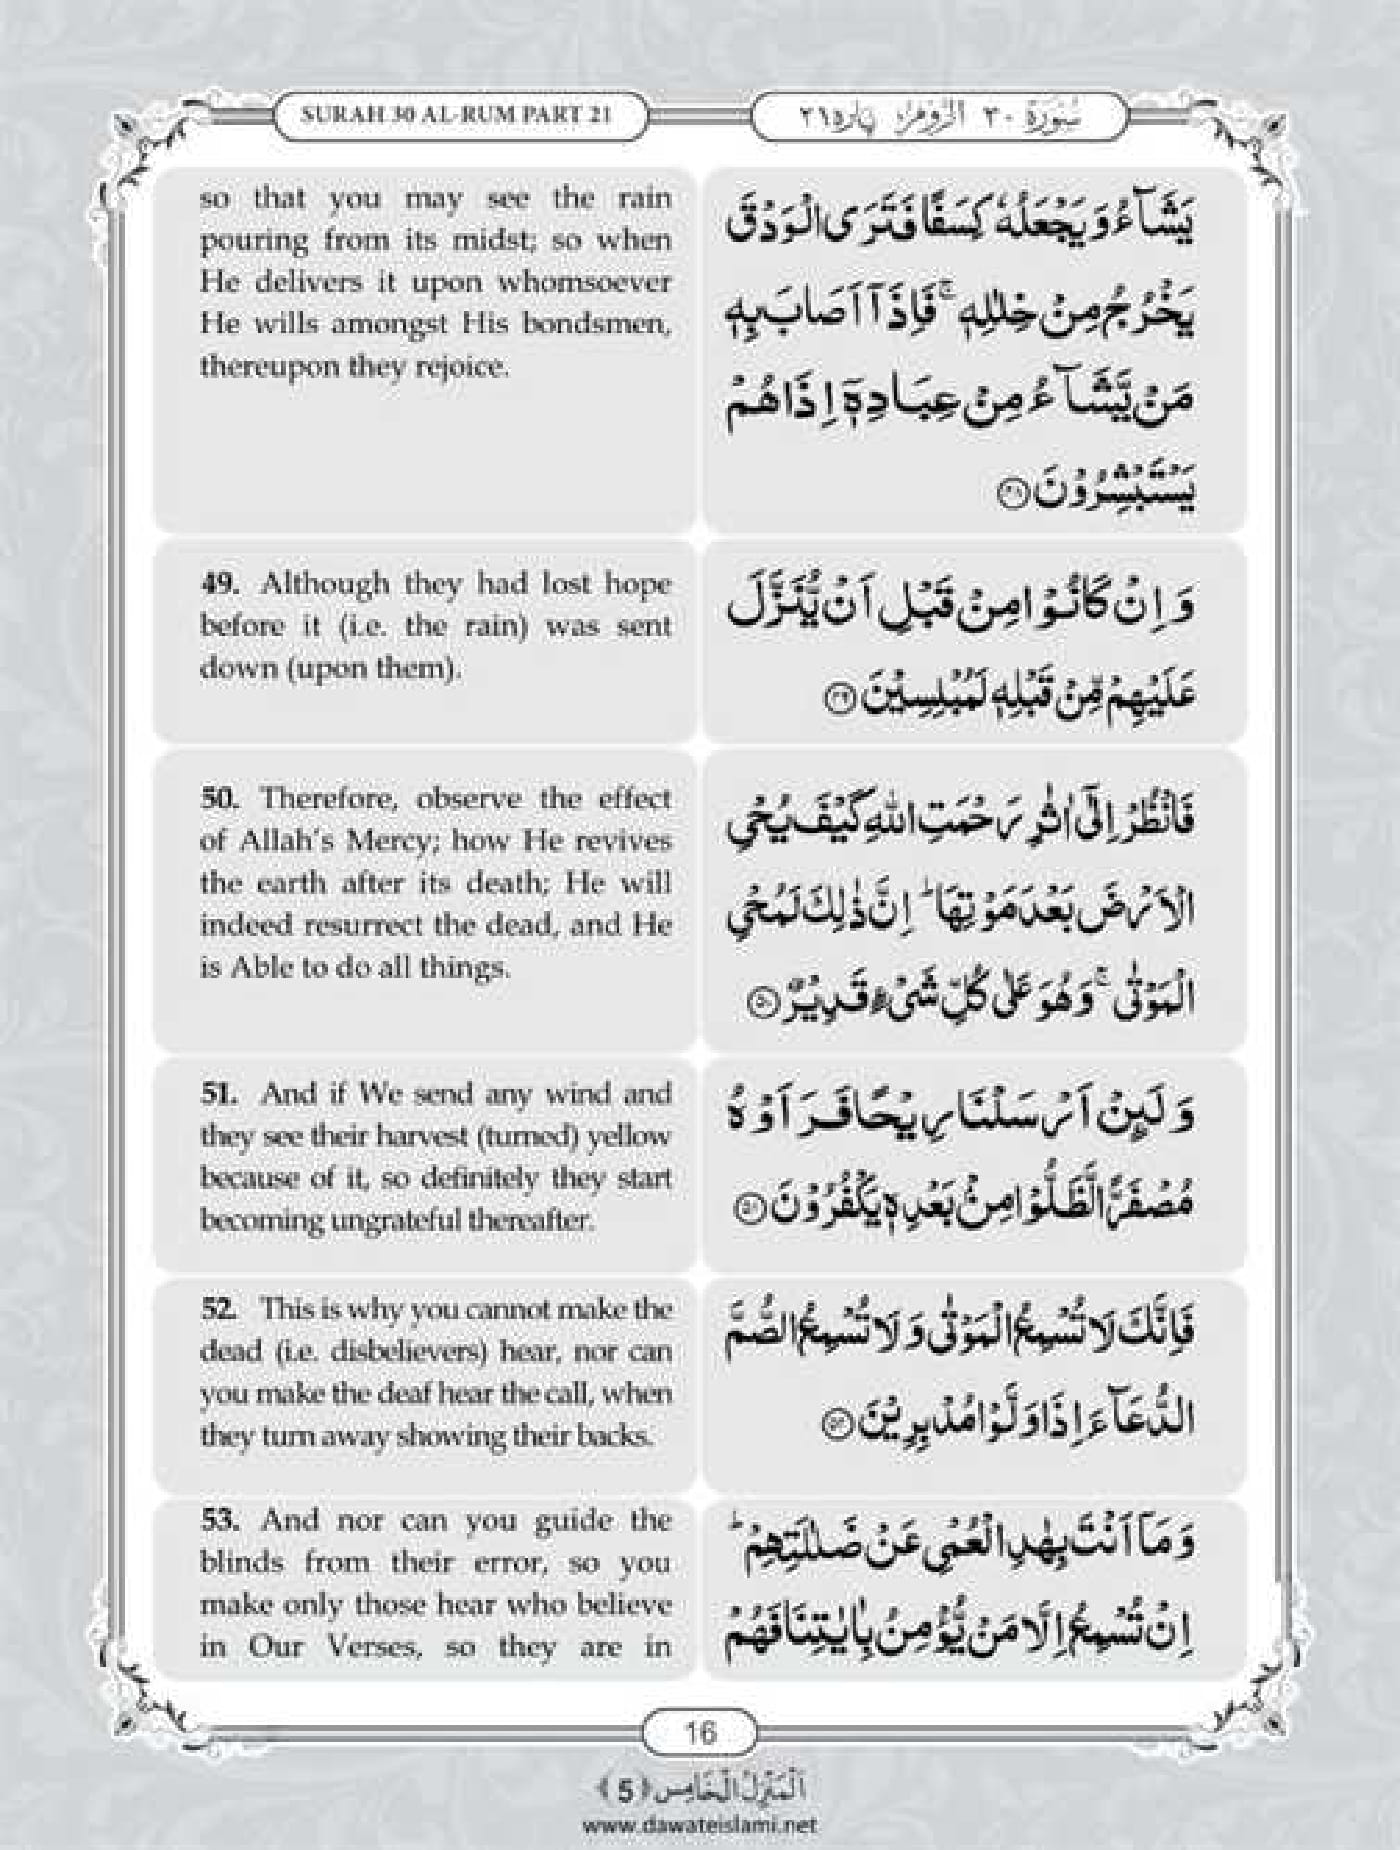 SURAH 30 AL-RUM PART 21
سُوْرَة ٣٠ الرُّوْمِ، پارہ ٢١
so that you may see the rain
pouring from its midst; so when
He delivers it upon whomsoever
He wills amongst His bondsmen,
thereupon they rejoice.
يَشَآءُ وَيَجْعَلُهٗ كِسَفًا فَتَرَى الْوَدْقَ
يَخْرُجُ مِنْ خِلٰلِهٖ ۚ فَاِذَاۤ اَصَابَ بِهٖ
مَنْ يَّشَآءُ مِنْ عِبَادِهٖۤ اِذَا هُمْ
يَسْتَبْشِرُوْنَ ﴿۴۸﴾
49. Although they had lost hope
before it (i.e. the rain) was sent
down (upon them).
وَ اِنْ كَانُوْا مِنْ قَبْلِ اَنْ يُّنَزَّلَ
عَلَيْهِمْ مِّنْ قَبْلِهٖ لَمُبْلِسِيْنَ ﴿۴۹﴾
50. Therefore, observe the effect
of Allah's Mercy; how He revives
the earth after its death; He will
indeed resurrect the dead, and He
is Able to do all things.
فَانْظُرْ اِلٰۤى اٰثٰرِ رَحْمَتِ اللّٰهِ كَيْفَ يُحْيِ
الْاَرْضَ بَعْدَ مَوْتِهَا ؕ اِنَّ ذٰلِكَ لَمُحْيِ
الْمَوْتٰى ۚ وَهُوَ عَلٰى كُلِّ شَىْءٍ قَدِيْرٌ ﴿۵۰﴾
51. And if We send any wind and
they see their harvest (turned) yellow
because of it, so definitely they start
becoming ungrateful thereafter.
وَ لَئِنْ اَرْسَلْنَا رِيْحًا فَرَاَوْهُ
مُصْفَرًّا لَّظَلُّوْا مِنْۢ بَعْدِهٖ يَكْفُرُوْنَ ﴿۵۱﴾
52. This is why you cannot make the
dead (i.e. disbelievers) hear, nor can
you make the deaf hear the call, when
they turn away showing their backs.
فَاِنَّكَ لَا تُسْمِعُ الْمَوْتٰى وَلَا تُسْمِعُ الصُّمَّ
الدُّعَآءَ اِذَا وَلَّوْا مُدْبِرِيْنَ ﴿۵۲﴾
53. And nor can you guide the
blinds from their error, so you
make only those hear who believe
in Our Verses, so they are in
وَ مَاۤ اَنْتَ بِهٰدِ الْعُمْىِ عَنْ ضَلٰلَتِهِمْ ؕ
اِنْ تُسْمِعُ اِلَّا مَنْ يُّؤْمِنُ بِاٰيٰتِنَا فَهُمْ
16
اَلْمَنْزِلُ الْخَامِس ﴿5﴾
www.dawateislami.net